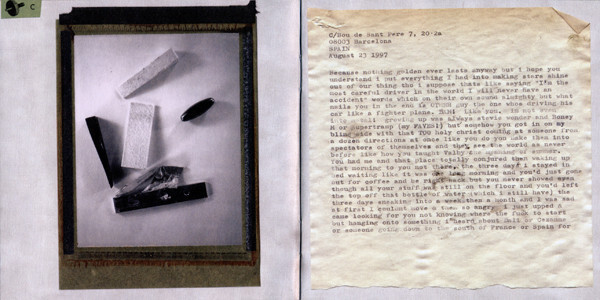 C
C/Nou de Sant Pere 7, 20-2a
08003 Barcelona
SPAIN
August 23 1997
Because nothing golden ever lasts anyway but i hope you
understand i put everything I had into making stars shine
out of our thing tho i suppose thats like saying "I'm the
most careful driver in the world I will never have an
accident" words which on their own sound alrighty but what
nails you in the end is OTHER guy the one whos driving his
car like a fighter plane. THEM like you. Its not even
growing up was always stevie wonder and Boney
M or supertramp (my FAVES!) but somehow you got in on my
blind side with that TOO holy christ coming at someone from
a dozen directions at once like you do you make them into
spectators of themselves and they see the world as never
before like how you taught
You had me and that place totally conjured then waking up
that morning to you not there, the three days i stayed in
bed waiting like it was the long morning and you'd just gone
out for coffee and be right back but you never showed even
though all your stuff was still on the floor and you'd left
the top off that bottle(of water which i still have) the
three days sneaking into a week then a month and i was sad
at first i couldnt move & then so angry i just upped &
came looking for you not knowing where the fuck to start
but hanging onto something i heard about Dali or Cezanne
or someone going down to the south of France or Spain for